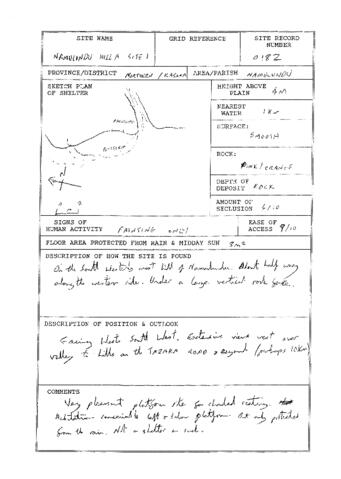 SITE NAME
GRID REFERENCE
SITE RECORD
NUMBER
NAMULUNDU HILL A SITE 1
0182
PROVINCE/DISTRICT NORTHERN / KASAMA
AREA/PARISH NAMULUNDU
SKETCH PLAN
OF SHELTER
HEIGHT ABOVE
PLAIN 4M
NEAREST
WATER 1Km
SURFACE:
SMOOTH
ROCK:
PINK/ORANGE
DEPTH OF
DEPOSIT ROCK
AMOUNT OF
SECLUSION 6/10
SIGNS OF
HUMAN ACTIVITY PAINTING ONLY
EASE OF
ACCESS 9/10
FLOOR AREA PROTECTED FROM RAIN & MIDDAY SUN 8m2
DESCRIPTION OF HOW THE SITE IS FOUND
On the South Western most hill of Namulundu. About half way
along the western side. Under a large vertical rock face.
DESCRIPTION OF POSITION & OUTLOOK
Facing West South West. Extensive views west over
valley to hills on the TAZARA ROAD & Beyond (perhaps 10Km)
COMMENTS
Very pleasant platform site for shaded resting.
left & below platform. But only protected
from the rain. Not a shelter as such.